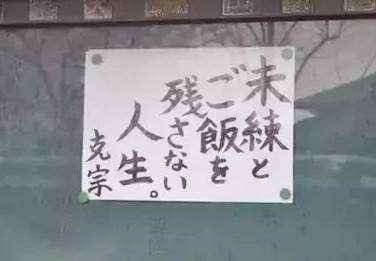 未練と
ご飯を
残さない
人生。
克宗